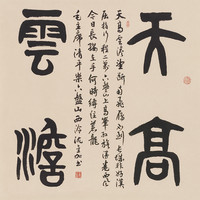 天高
天高雲淡望斷南飛雁不到長城非好漢
屈指行程二萬六盤山上高峰紅旗漫卷西風
今日長纓在手何時縛住蒼龍
毛主席清平樂六盤山 西泠沈
雲澹